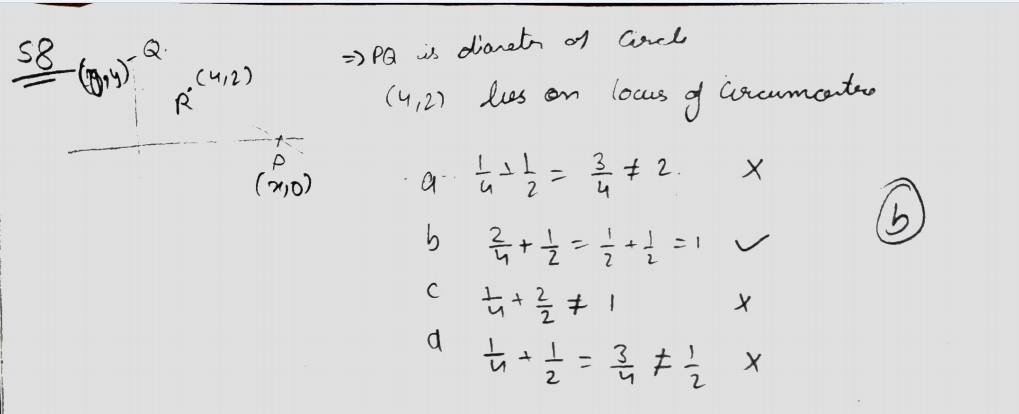 58
Q
(0,y)
R (4,2)
P
(x,0)
⇒ PQ is diameter of circle
(4,2) lies on locus of circumcentre
a 1/4 + 1/2 = 3/4 ≠ 2. ×
b 2/4 + 1/2 = 1/2 + 1/2 = 1 ✓
c 1/4 + 2/2 ≠ 1 ×
d 1/4 + 1/2 = 3/4 ≠ 1/2 ×
b